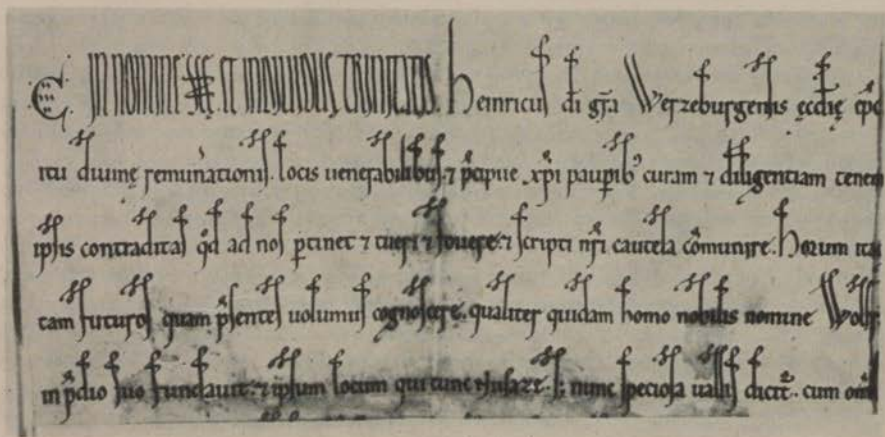 IN NOMINE SCE ET INDIVIDUE TRINITATIS. Heinricus di gra Werzeburgensis ęcclię epc
itu divinę remunationis. locis uenerabilibus. ⁊ pcipue xpi paupib' curam ⁊ diligentiam tenem
ipsis contraditas qd ad nos ptinet ⁊ tueri ⁊ fouere. ⁊ scripti nri cautela cōmunire. Horum ita
tam futuros quam psentes uolumus cognoscere. qualiter quidam homo nobilis nomine Wolf
in pdio suo fundauit. ⁊ ipsum locum qui tunc s; nunc speciosa uallis dicit. cum om